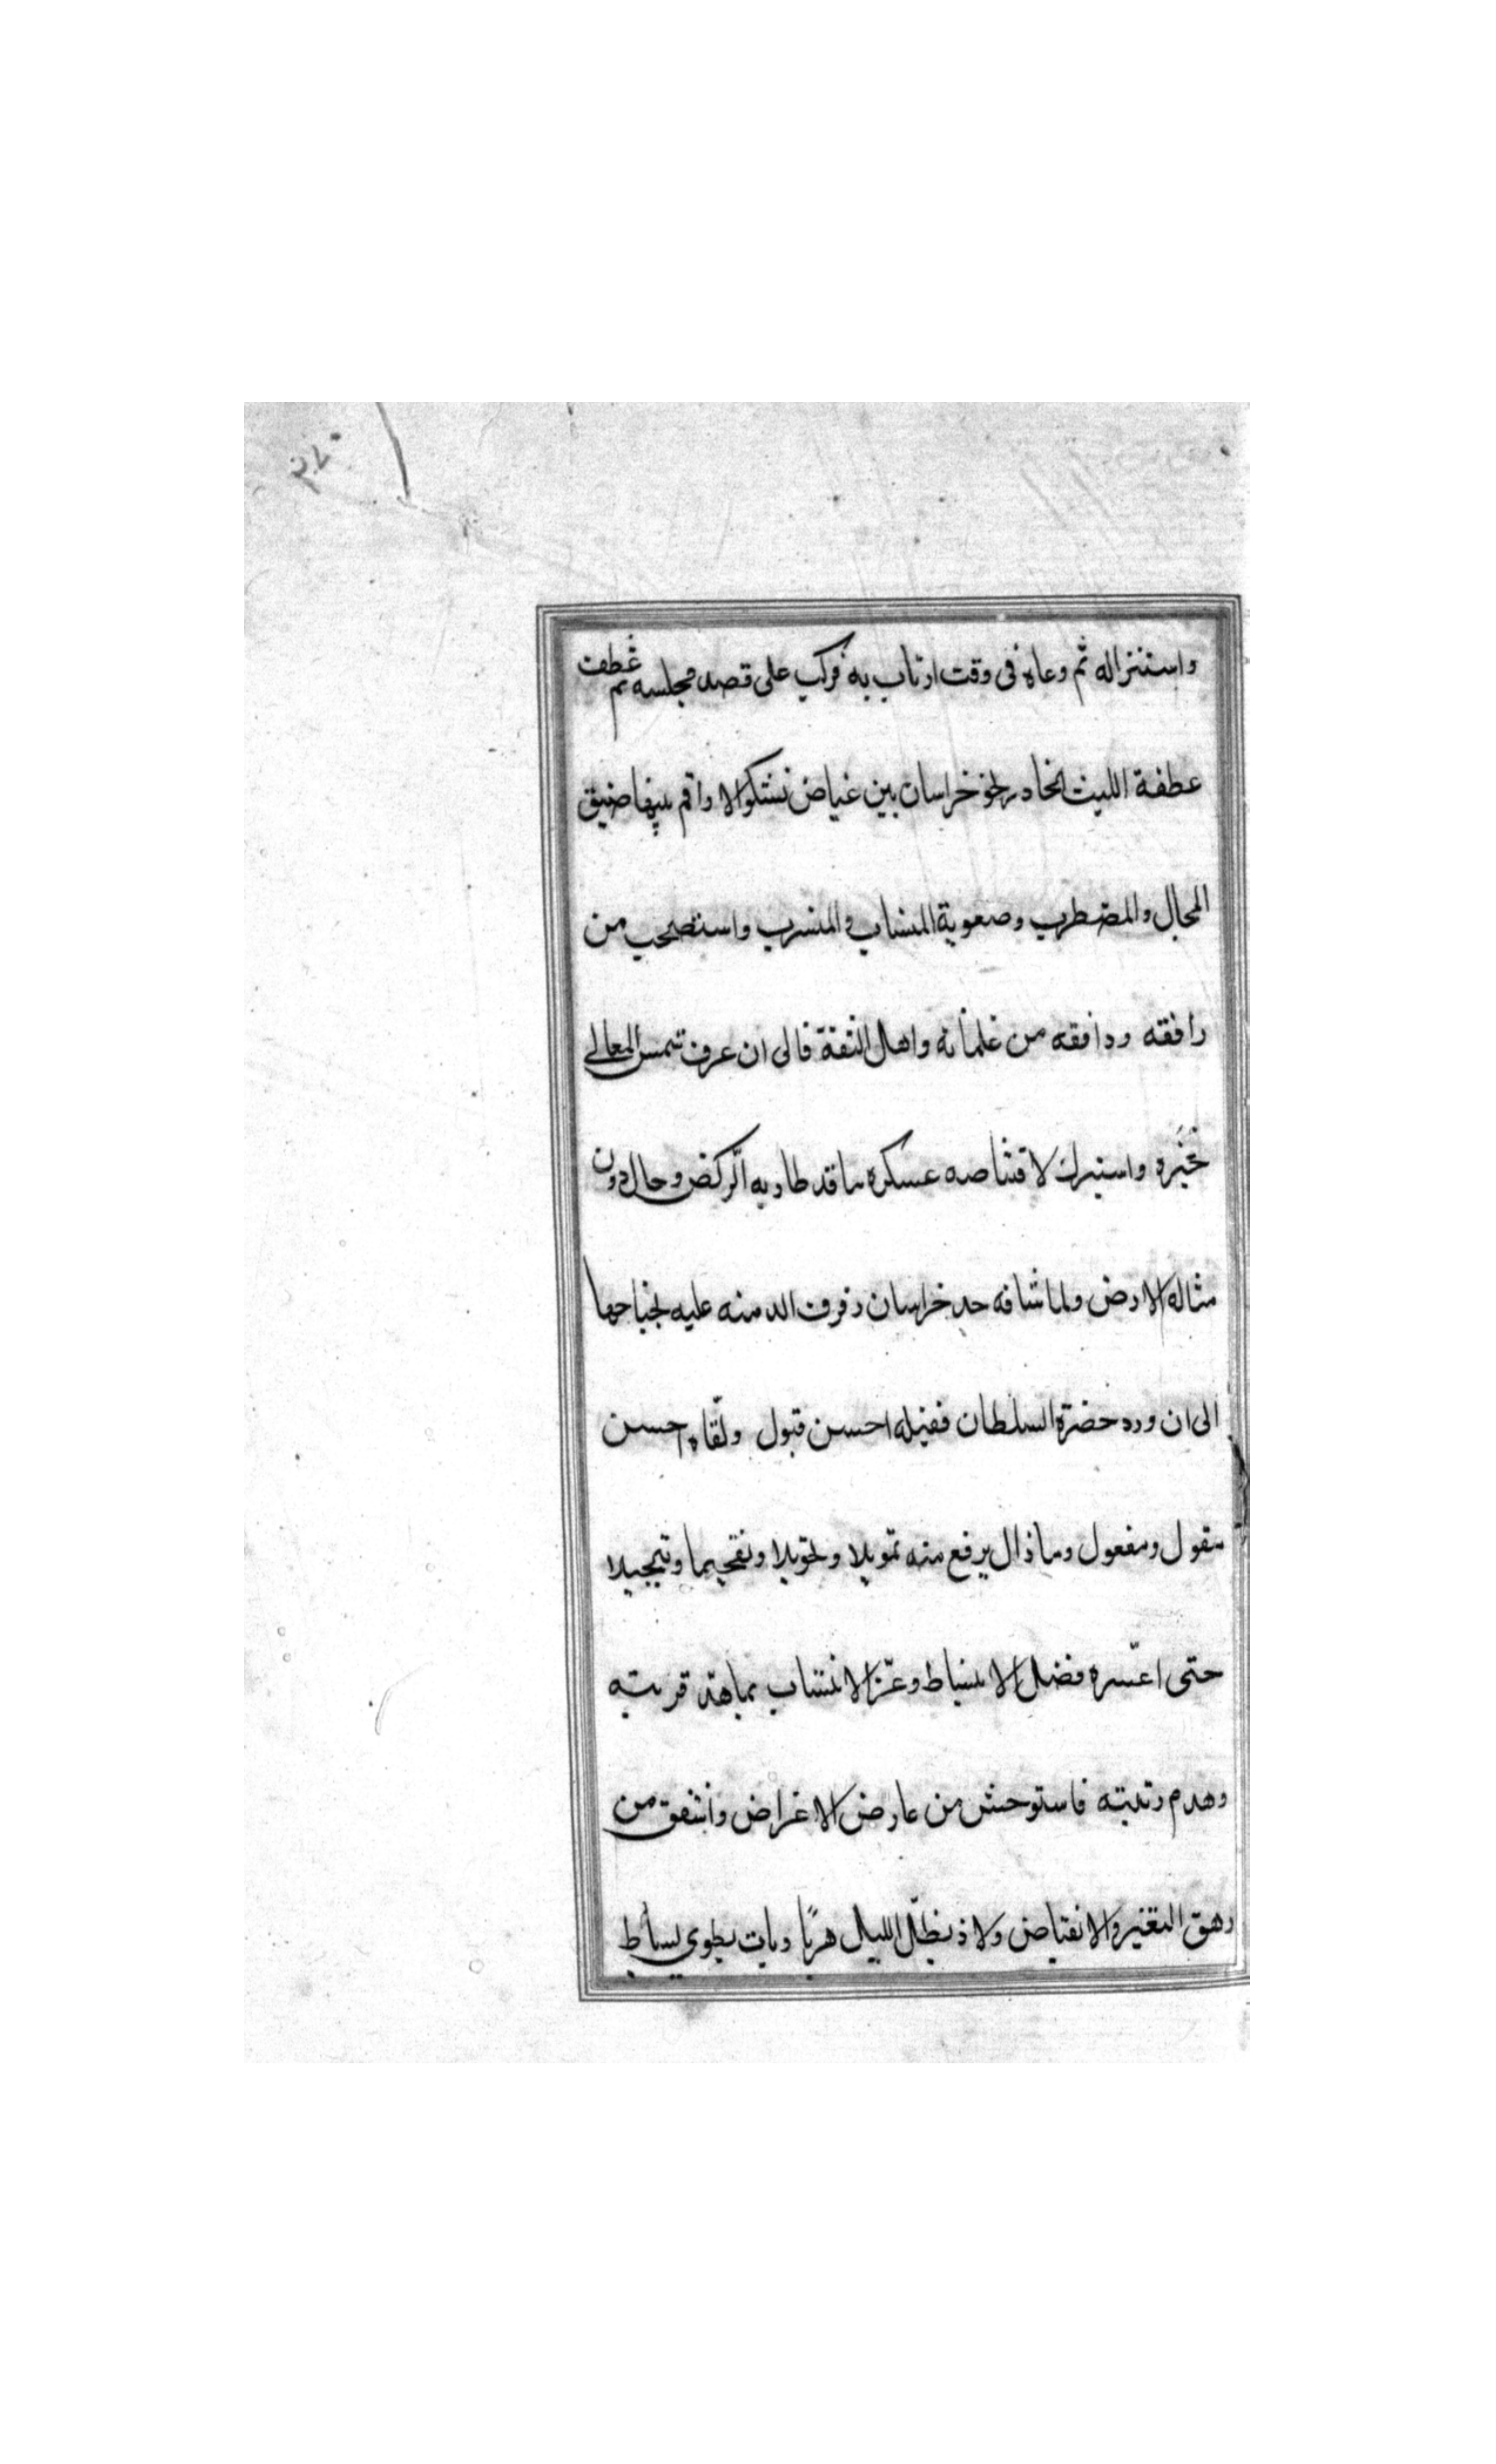 واستنزاله ثم دعاه فى وقت ارتاب به فركب على قصد مجلسه ثم عطف
عطفة الليث الخادر نحو خراسان بين غياض تشكوا الاراقم بينها ضيق
المجال والمضطرب وصعوبة المنساب والمنسرب واستصحب من
رافقه ووافقه من غلمانه واهل الثقة فالى ان عرف شمس المعالى
خبره واستركب لاقتناصه عسكره ما قد طار به الركض وحال دون
مثاله الارض ولما شافه حد خراسان رفرفت الدمنه عليه بجناحها
الى ان ورد حضرة السلطان فقبله احسن قبول ولقاه احسن
مقول ومفعول وما زال يرفع منه تمويلا وتخويلا وتفخيما وتبجيلا
حتى اعثره فضل الانبساط وعز الانتساب بماهة قربته
وهدم رتبته فاستوحش من عارض الاعراض واشفق من
رهق التغير والانقباض ولاذ بظل الليل هربا وبات يطوى بساط